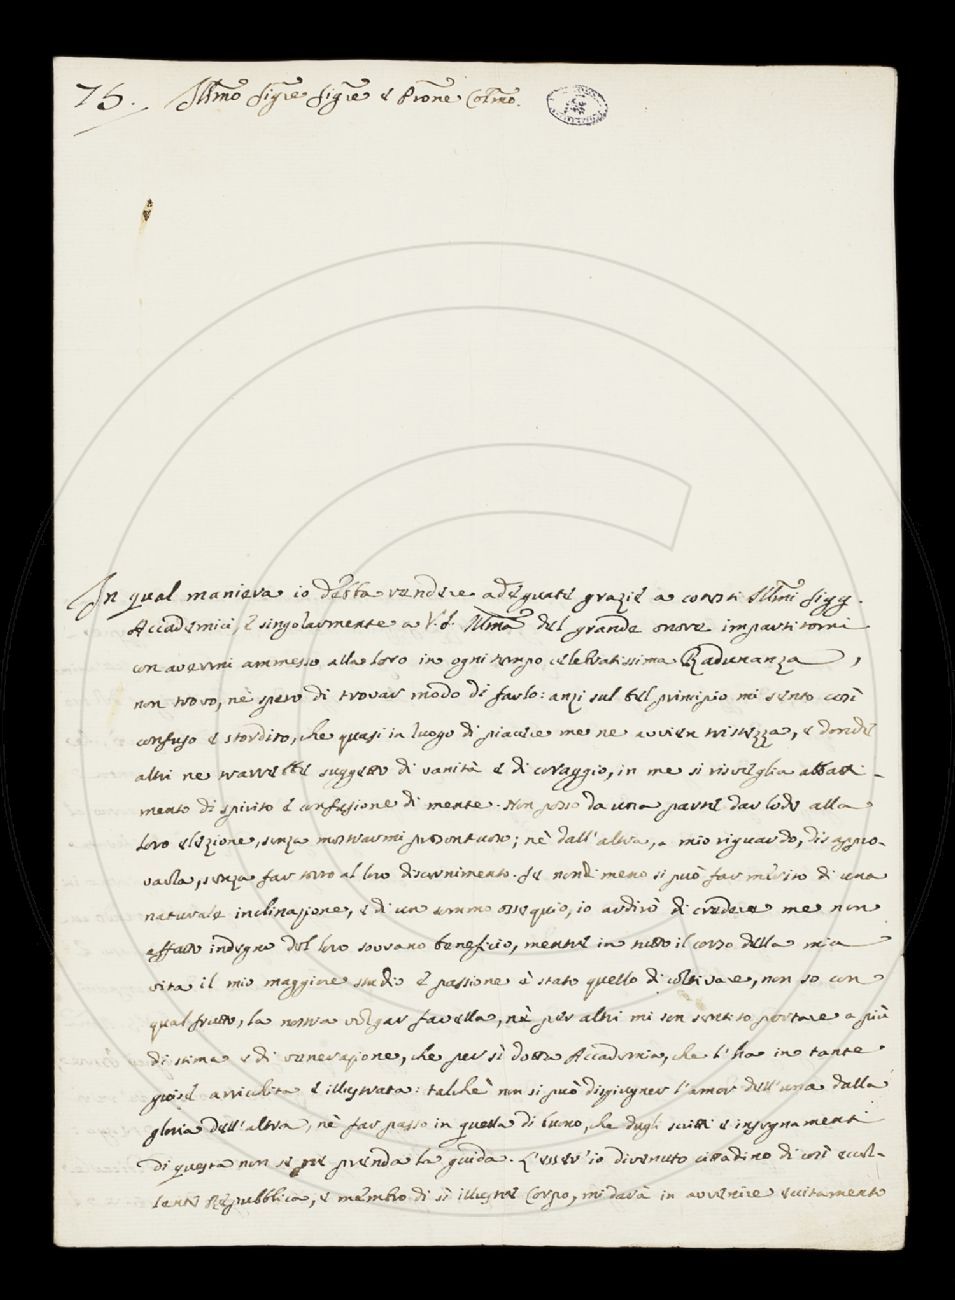 75. Illmo Sigre Sigre e Prone Colmo.
In qual maniera io debba rendere adeguate grazie a cotesti Illmi Sigg.
Accademici, e singolarmente a V.S. Illma del grande onore impartitomi
con avermi ammesso alla loro in ogni tempo celebratissima Radunanza,
non trovo, nè spero di trovar modo di farlo: anzi sul bel principio mi sento così
confuso e stordito, che quasi in luogo di piacere me ne avvien tristezza, e donde
altri ne trarrebbe suggetto di vanità e di coraggio, in me si risveglia abbatti-
mento di spirito e confusione di mente. Non posso da una parte dar lode alla
loro elezione, senza mostrarmi presontuoso; nè dall'altra, a mio riguardo, disappro-
varla, senza far torto al loro discernimento. Se nondimeno si può far mèrito di una
naturale inclinazione, e di un sommo ossequio, io ardirò di credere me non
affatto indegno del loro sovrano beneficio, mentre in tutto il corso della mia
vita il mio maggiore studio e passione è stato quello di coltivare, non so con
qual frutto, la nostra volgar favella, nè per altri mi son sentito portare a più
di stima e di venerazione, che per sì dotta Accademia, che l'ha in tante
guise arricchita e illustrata: talchè non si può disgiugner l'amor dell'una dalla
gloria dell'altra, nè far passo in quella di buono, che dagli scritti e insegnamenti
di questa non se ne prenda la guida. L'esser'io divenuto cittadino di così eccel-
lente Repubblica, e membro di sì illustre Corpo, mi darà in avvenire eccitamento